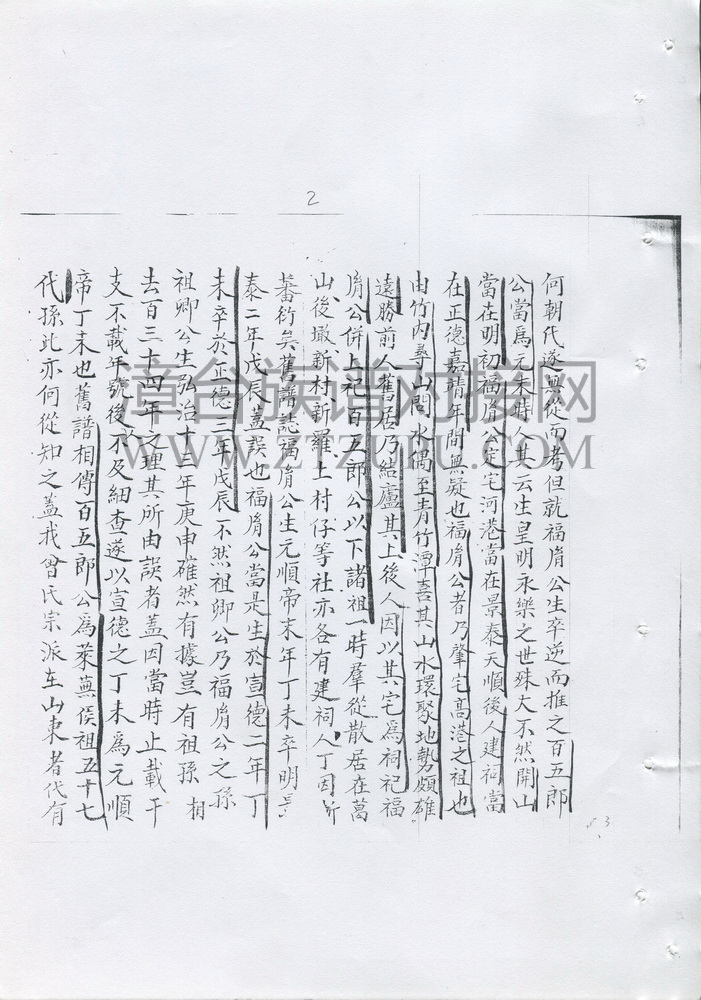 2
何朝代遂無從而考但就福胤公生卒逆而推之百五郎
公當爲元末時人其云生皇明永樂之世殊大不然開山
當在明初福胤公宅宅河港當在景泰天順後人建祠當
在正德嘉靖年間無疑也福胤公者乃肇宅高港之祖也
由竹內尋山問水偶至青竹潭喜其山水環聚地勢頗雄
遠勝前人舊居乃結廬其上後人因以其宅爲祠祀福
胤公併上祀百五郎公以下諸祖一時羣從散居在萬
山後撤新村新羅上村仔等社亦各有建祠人丁因所
蕃衍矣舊譜誌福胤公生元順帝末年丁未卒明景
泰二年戊辰蓋誤也福胤公當是生於宣德二年丁
未卒於正德三年戊辰不然祖卿公乃福胤公之孫
祖卿公生弘治十三年庚申確然有據豈有祖孫相
去百三十四年之理其所由誤者蓋因當時止載干
支不載年號後不及細查遂以宣德之丁未爲元順
帝丁未也舊譜相傳百五郎公爲萊蕪侯祖五十七
代孫此亦何從知之蓋我曾氏宗派在山東者代有
漳台族谱对接网
WWW.ZTZUPU.COM